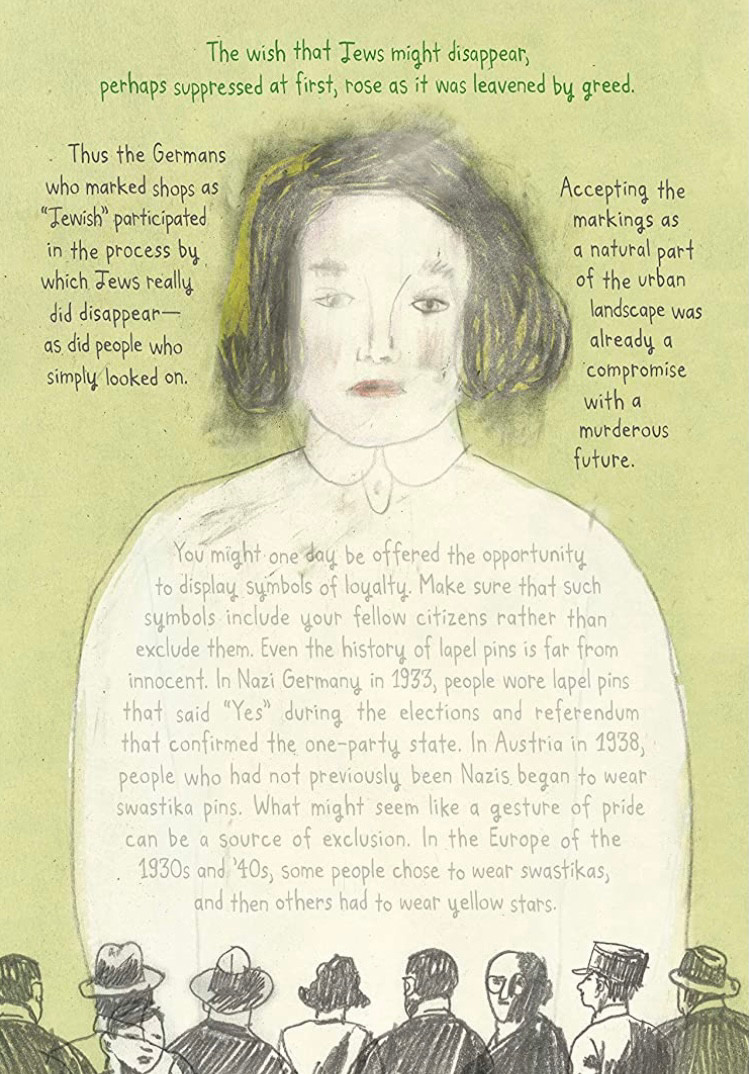 The wish that Jews might disappear,
perhaps suppressed at first, rose as it was leavened by greed.
Thus the Germans
who marked shops as
“Jewish” participated
in the process by
which Jews really
did disappear—
as did people who
simply looked on.
Accepting the
markings as
a natural part
of the urban
landscape was
already a
compromise
with a
murderous
future.
You might one day be offered the opportunity
to display symbols of loyalty. Make sure that such
symbols include your fellow citizens rather than
exclude them. Even the history of lapel pins is far from
innocent. In Nazi Germany in 1933, people wore lapel pins
that said “Yes” during the elections and referendum
that confirmed the one-party state. In Austria in 1938,
people who had not previously been Nazis began to wear
swastika pins. What might seem like a gesture of pride
can be a source of exclusion. In the Europe of the
1930s and ’40s, some people chose to wear swastikas,
and then others had to wear yellow stars.